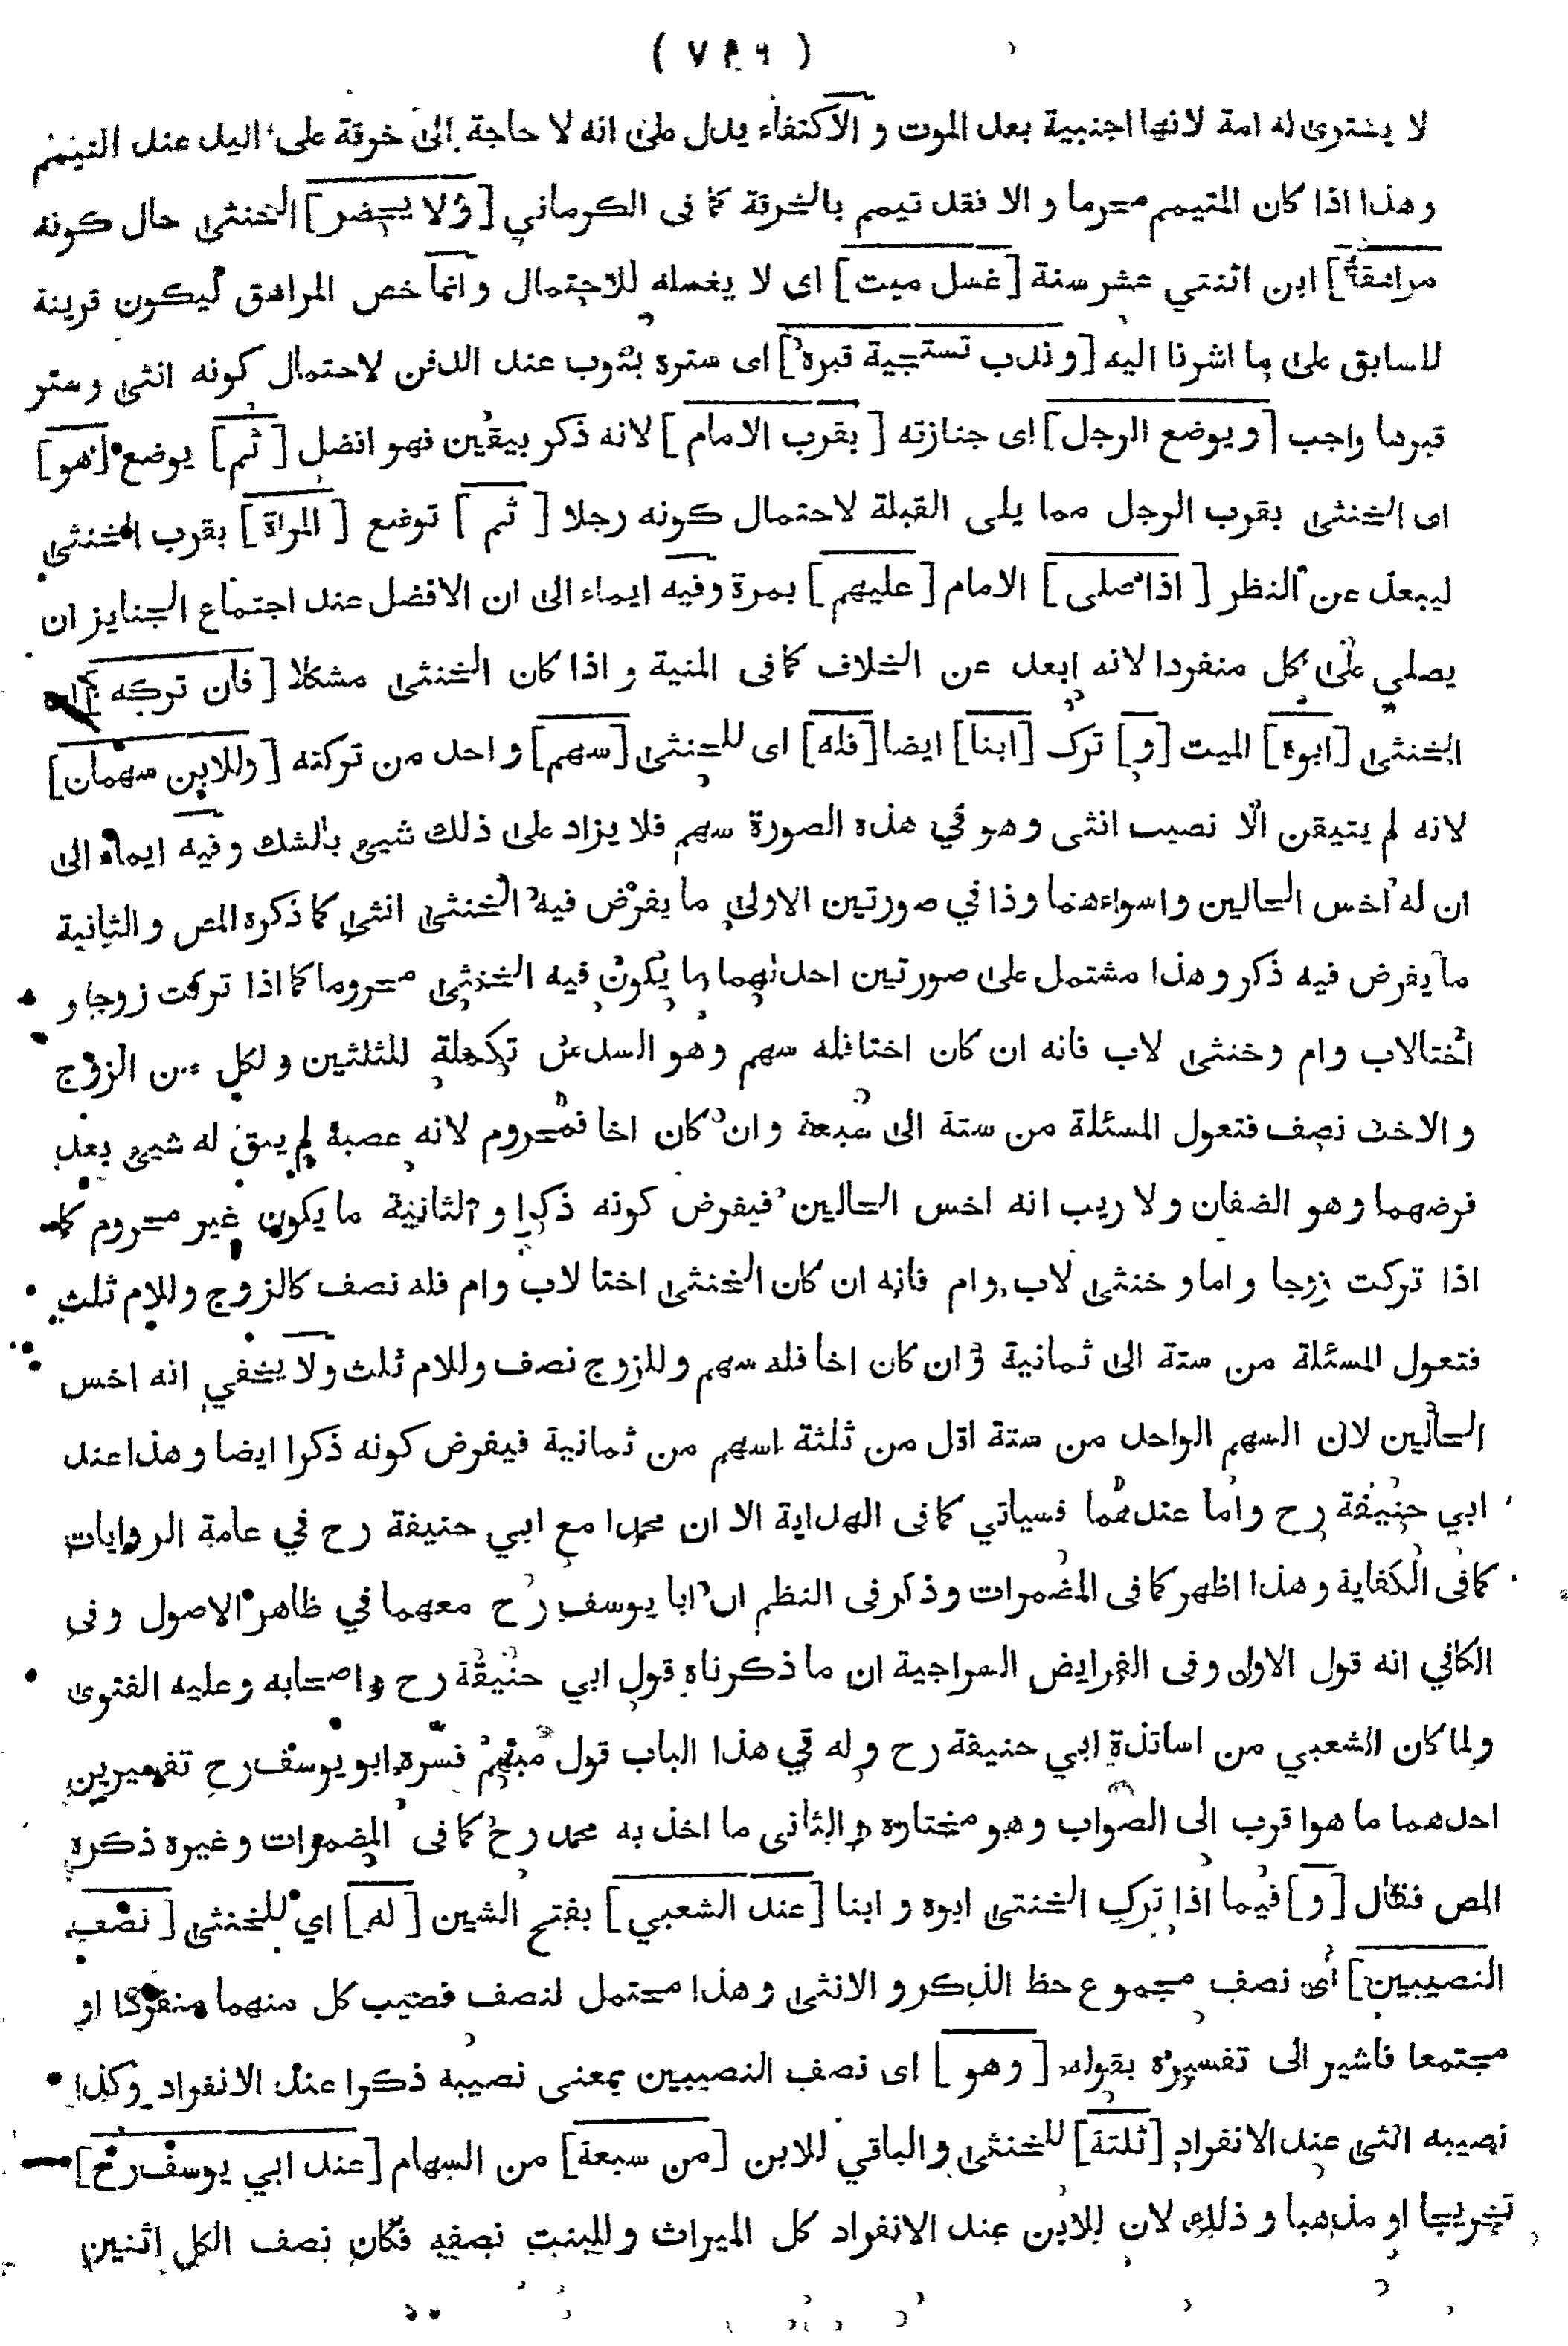 ( ٧٤٦ )
لا يشترى له امة لانها اجنبية بعد الموت و الاكتفاء يدل على انه لا حاجة الى خرقة على اليد عند التيمم
وهذا اذا كان المتيمم محرما و الا فقد تيمم بالخرقة كما فى الكرماني [ولا يحضر] الخنثى حال كونه
مراهقا] ابن اثنتي عشر سنة [غسل ميت] اى لا يغسله للاحتمال وانما خص المراهق ليكون قرينة
لسابق على ما اشرنا اليه [وندب تستجية قبره] اى ستره بثوب عند الدفن لاحتمال كونه انثى وستر
قبرها واجب [ويوضع الرجل] اى جنازته [بقرب الامام] لانه ذكر بيقين فهو افضل [ثم] يوضع [هو]
اى الخنثى بقرب الرجل مما يلى القبلة لاحتمال كونه رجلا [ثم] توضع [المراة] بقرب الخنثى
ليبعد عن النظر [اذا صلى] الامام [عليهم] بمرة وفيه ايماء الى ان الافضل عند اجتماع الجنايز ان
يصلي على كل منفردا لانه ابعد عن الخلاف كما فى المنية و اذا كان الخنثى مشكلا [فان تركه
الخنثى [ابوه] الميت [و] ترك [ابنا] ايضا [فله] اى للخنثى [سهم] واحد من تركته [وللابن سهمان]
لانه لم يتيقن الا نصيب انثى وهو في هذه الصورة سهم فلا يزاد على ذلك شيئ بالشك وفيه ايماء الى
ان له اخس الحالين واسواءهما وذا في صورتين الاولى ما يفرض فيه الخنثى انثى كما ذكره المص والثانية
ما يفرض فيه ذكر وهذا مشتمل على صورتين احدٰهما ما يكون فيه الخنثى محروما كما اذا تركت زوجا و
اختالاب وام وخنثى لاب فانه ان كان اختا فله سهم وهو السدس تكملة للثلثين ولكل من الزوج
والاخت نصف فتعول المسئلة من ستة الى سبعة وان كان اخا فمحروم لانه عصبة لم يبق له شيئ بعد
فرضهما وهو الضفان ولا ريب انه اخس الحالين فيفرض كونه ذكرا والثانية ما يكون غير محروم كما
اذا تركت زوجا واما و خنثى لاب وام فانه ان كان الخنثى اختا لاب وام فله نصف كالزوج وللام ثلث
فتعول المسئلة من ستة الى ثمانية و ان كان اخا فله سهم وللزوج نصف وللام ثلث ولا يخفي انه اخس
الحالين لان السهم الواحد من ستة اقل من ثلثة اسهم من ثمانية فيفرض كونه ذكرا ايضا وهذا عند
ابي حنيفة رح واما عندهما فسياتي كما فى الهداية الا ان محمدا مع ابي حنيفة رح في عامة الروايات
كما فى الكفاية وهذا اظهر كما فى المضمرات وذكر فى النظم ان ابا يوسف رح معهما في ظاهر الاصول وفى
الكافي انه قول الاول وفى الفرايض السراجية ان ما ذكرناه قول ابي حنيفة رح واصحابه وعليه الفتوى
ولما كان الشعبي من اساتذة ابي حنيفة رح وله في هذا الباب قول مبهم فسره ابو يوسف رح تفسيرين
احدهما ما هوا قرب الى الصواب وهو مختاره والثانى ما اخذ به محمد رح كما فى المضمرات وغيره ذكره
المص فقال [و] فيما اذا ترك الخنثى ابوه و ابنا [عند الشعبي] بفتح الشين [له] اي للخنثى [نصف
النصيبين] اى نصف مجموع حظ الذكر و الانثى وهذا محتمل لنصف نصيب كل منهما منفردا او
مجتمعا فاشير الى تفسيره بقوله [وهو] اى نصف النصيبين بمعنى نصيبه ذكرا عند الانفراد وكذا
نصيبه انثى عند الانفراد [ثلثة] للخنثى والباقي للابن [من سبعة] من السهام [عند ابي يوسف رح]
تخريجا او مذهبا و ذلك لان للابن عند الانفراد كل الميراث وللبنت نصفه فكان نصف الكل اثنين